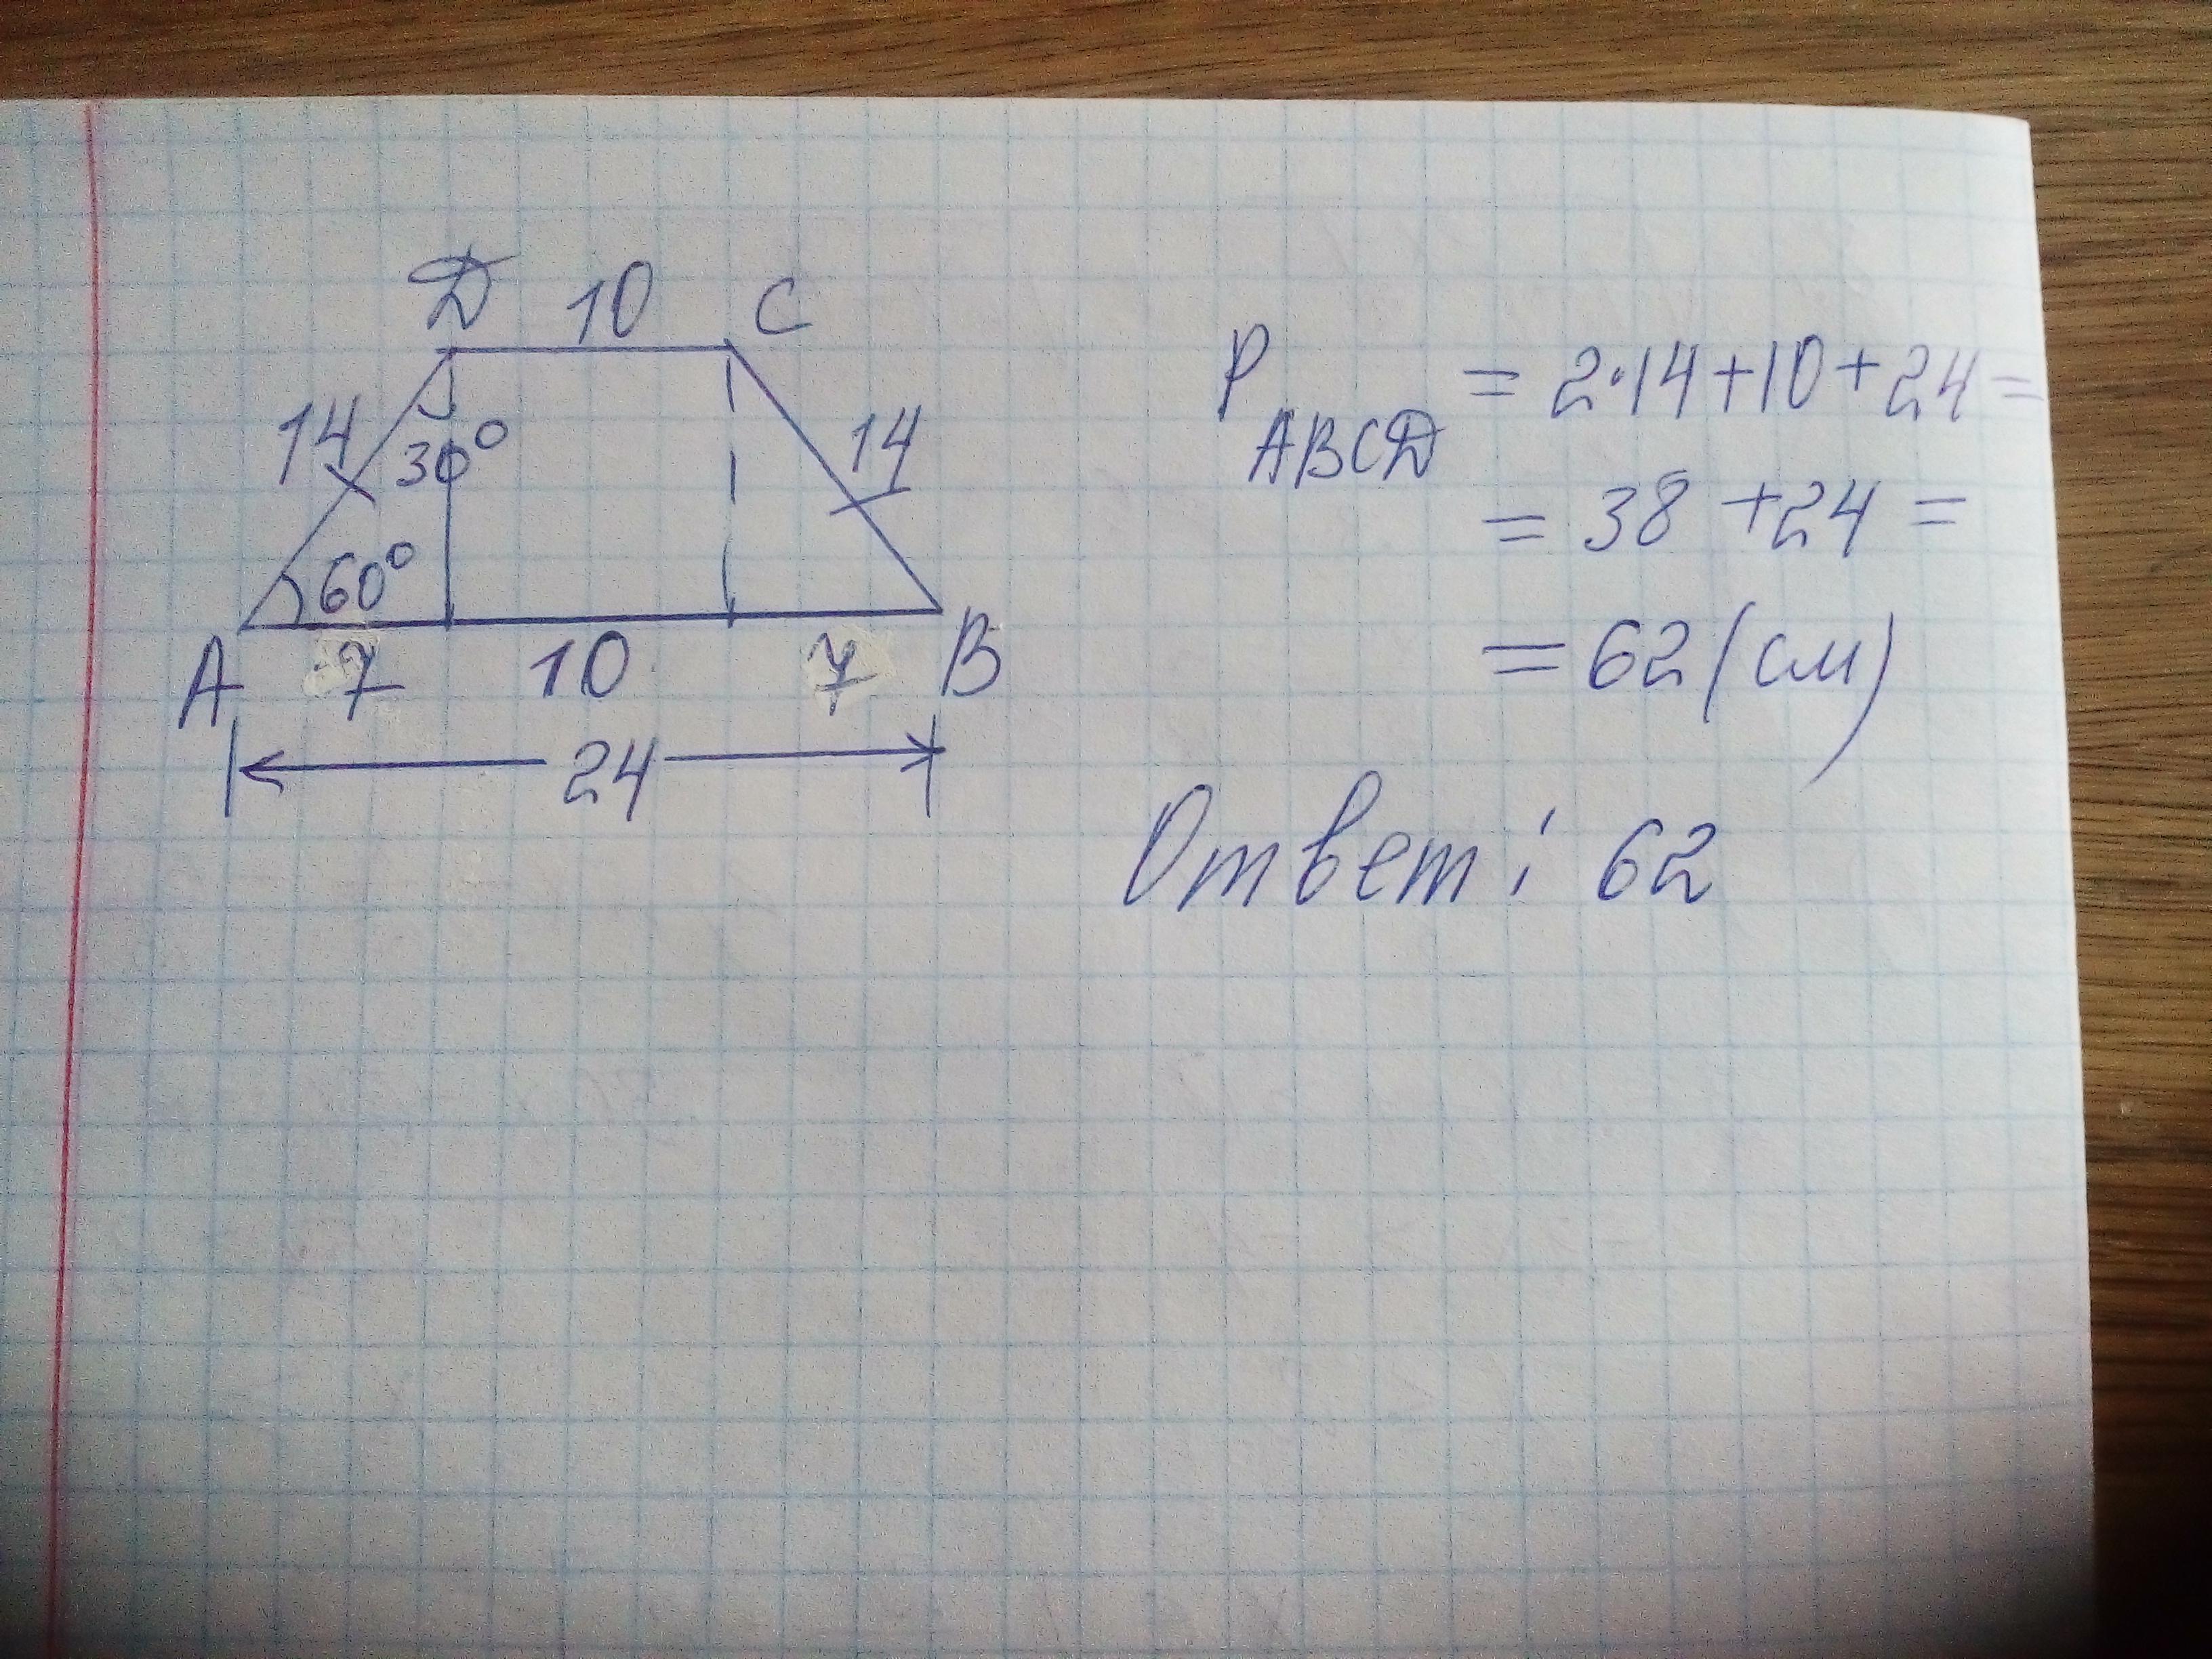 D 10 C
14 30° 14
60°
A 7 10 7 B
24
P ABCD = 2·14+10+24=
= 38 +24 =
= 62 (см)
Ответ: 62